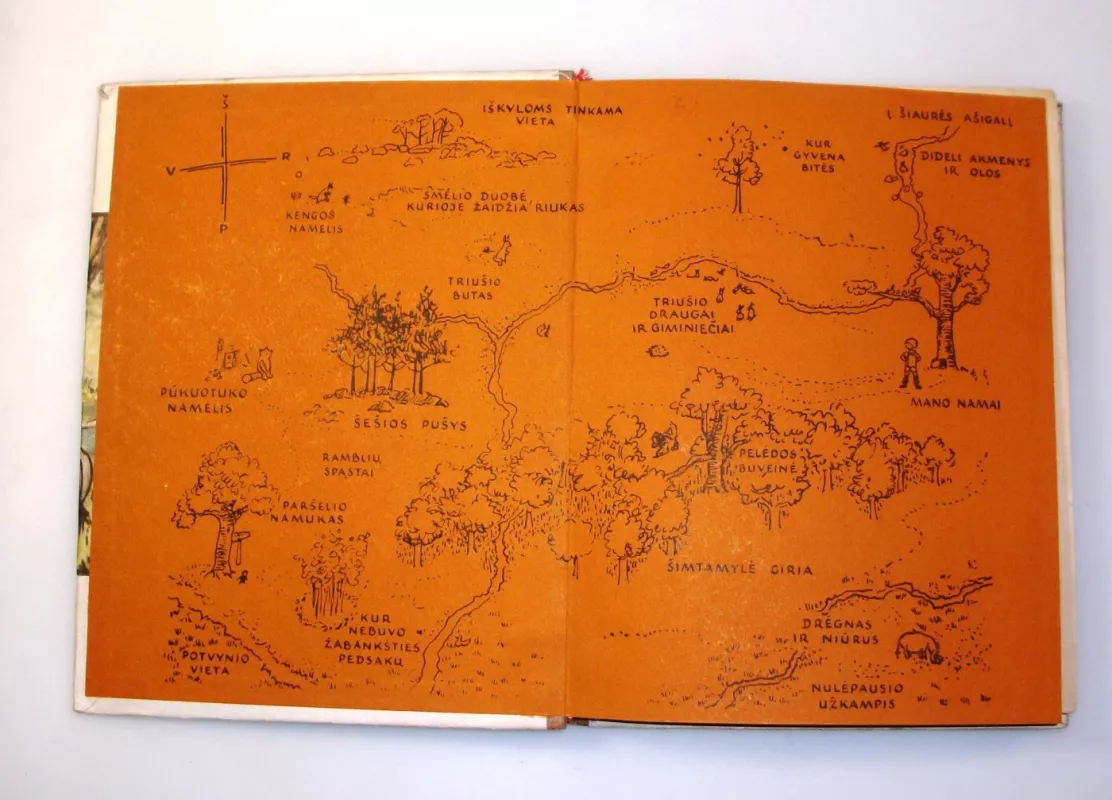 Š
V R
P
IŠKYLOMS TINKAMA
VIETA
KUR
GYVENA
BITĖS
Į ŠIAURĖS AŠIGALĮ
DIDELI AKMENYS
IR OLOS
KENGOS
NAMELIS
SMĖLIO DUOBĖ,
KURIOJE ŽAIDŽIA RIUKAS
TRIUŠIO
BUTAS
TRIUŠIO
DRAUGAI
IR GIMINIEČIAI
PŪKUOTUKO
NAMELIS
ŠEŠIOS PUŠYS
MANO NAMAI
RAMBLIŲ
SPĄSTAI
PELĖDOS
BUVEINĖ
PARŠELIO
NAMUKAS
ŠIMTAMYLĖ GIRIA
KUR
NEBUVO
ŽABANKŠTIES
PĖDSAKŲ
POTVYNIO
VIETA
DRĖGNAS
IR NIŪRUS
NULĖPAUSIO
UŽKAMPIS